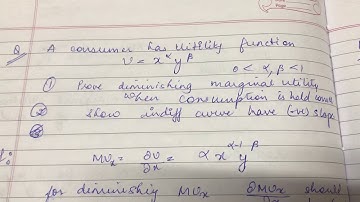 Q A consumer has utility function
U = x^α y^β 0 < α, β < 1
① Prove diminishing marginal utility
when consumption is held const
② show indiff curve have (-ve) slope
③
MUx = ∂U/∂x = α x^(α-1) y^β
for diminishing MUx ∂MUx should